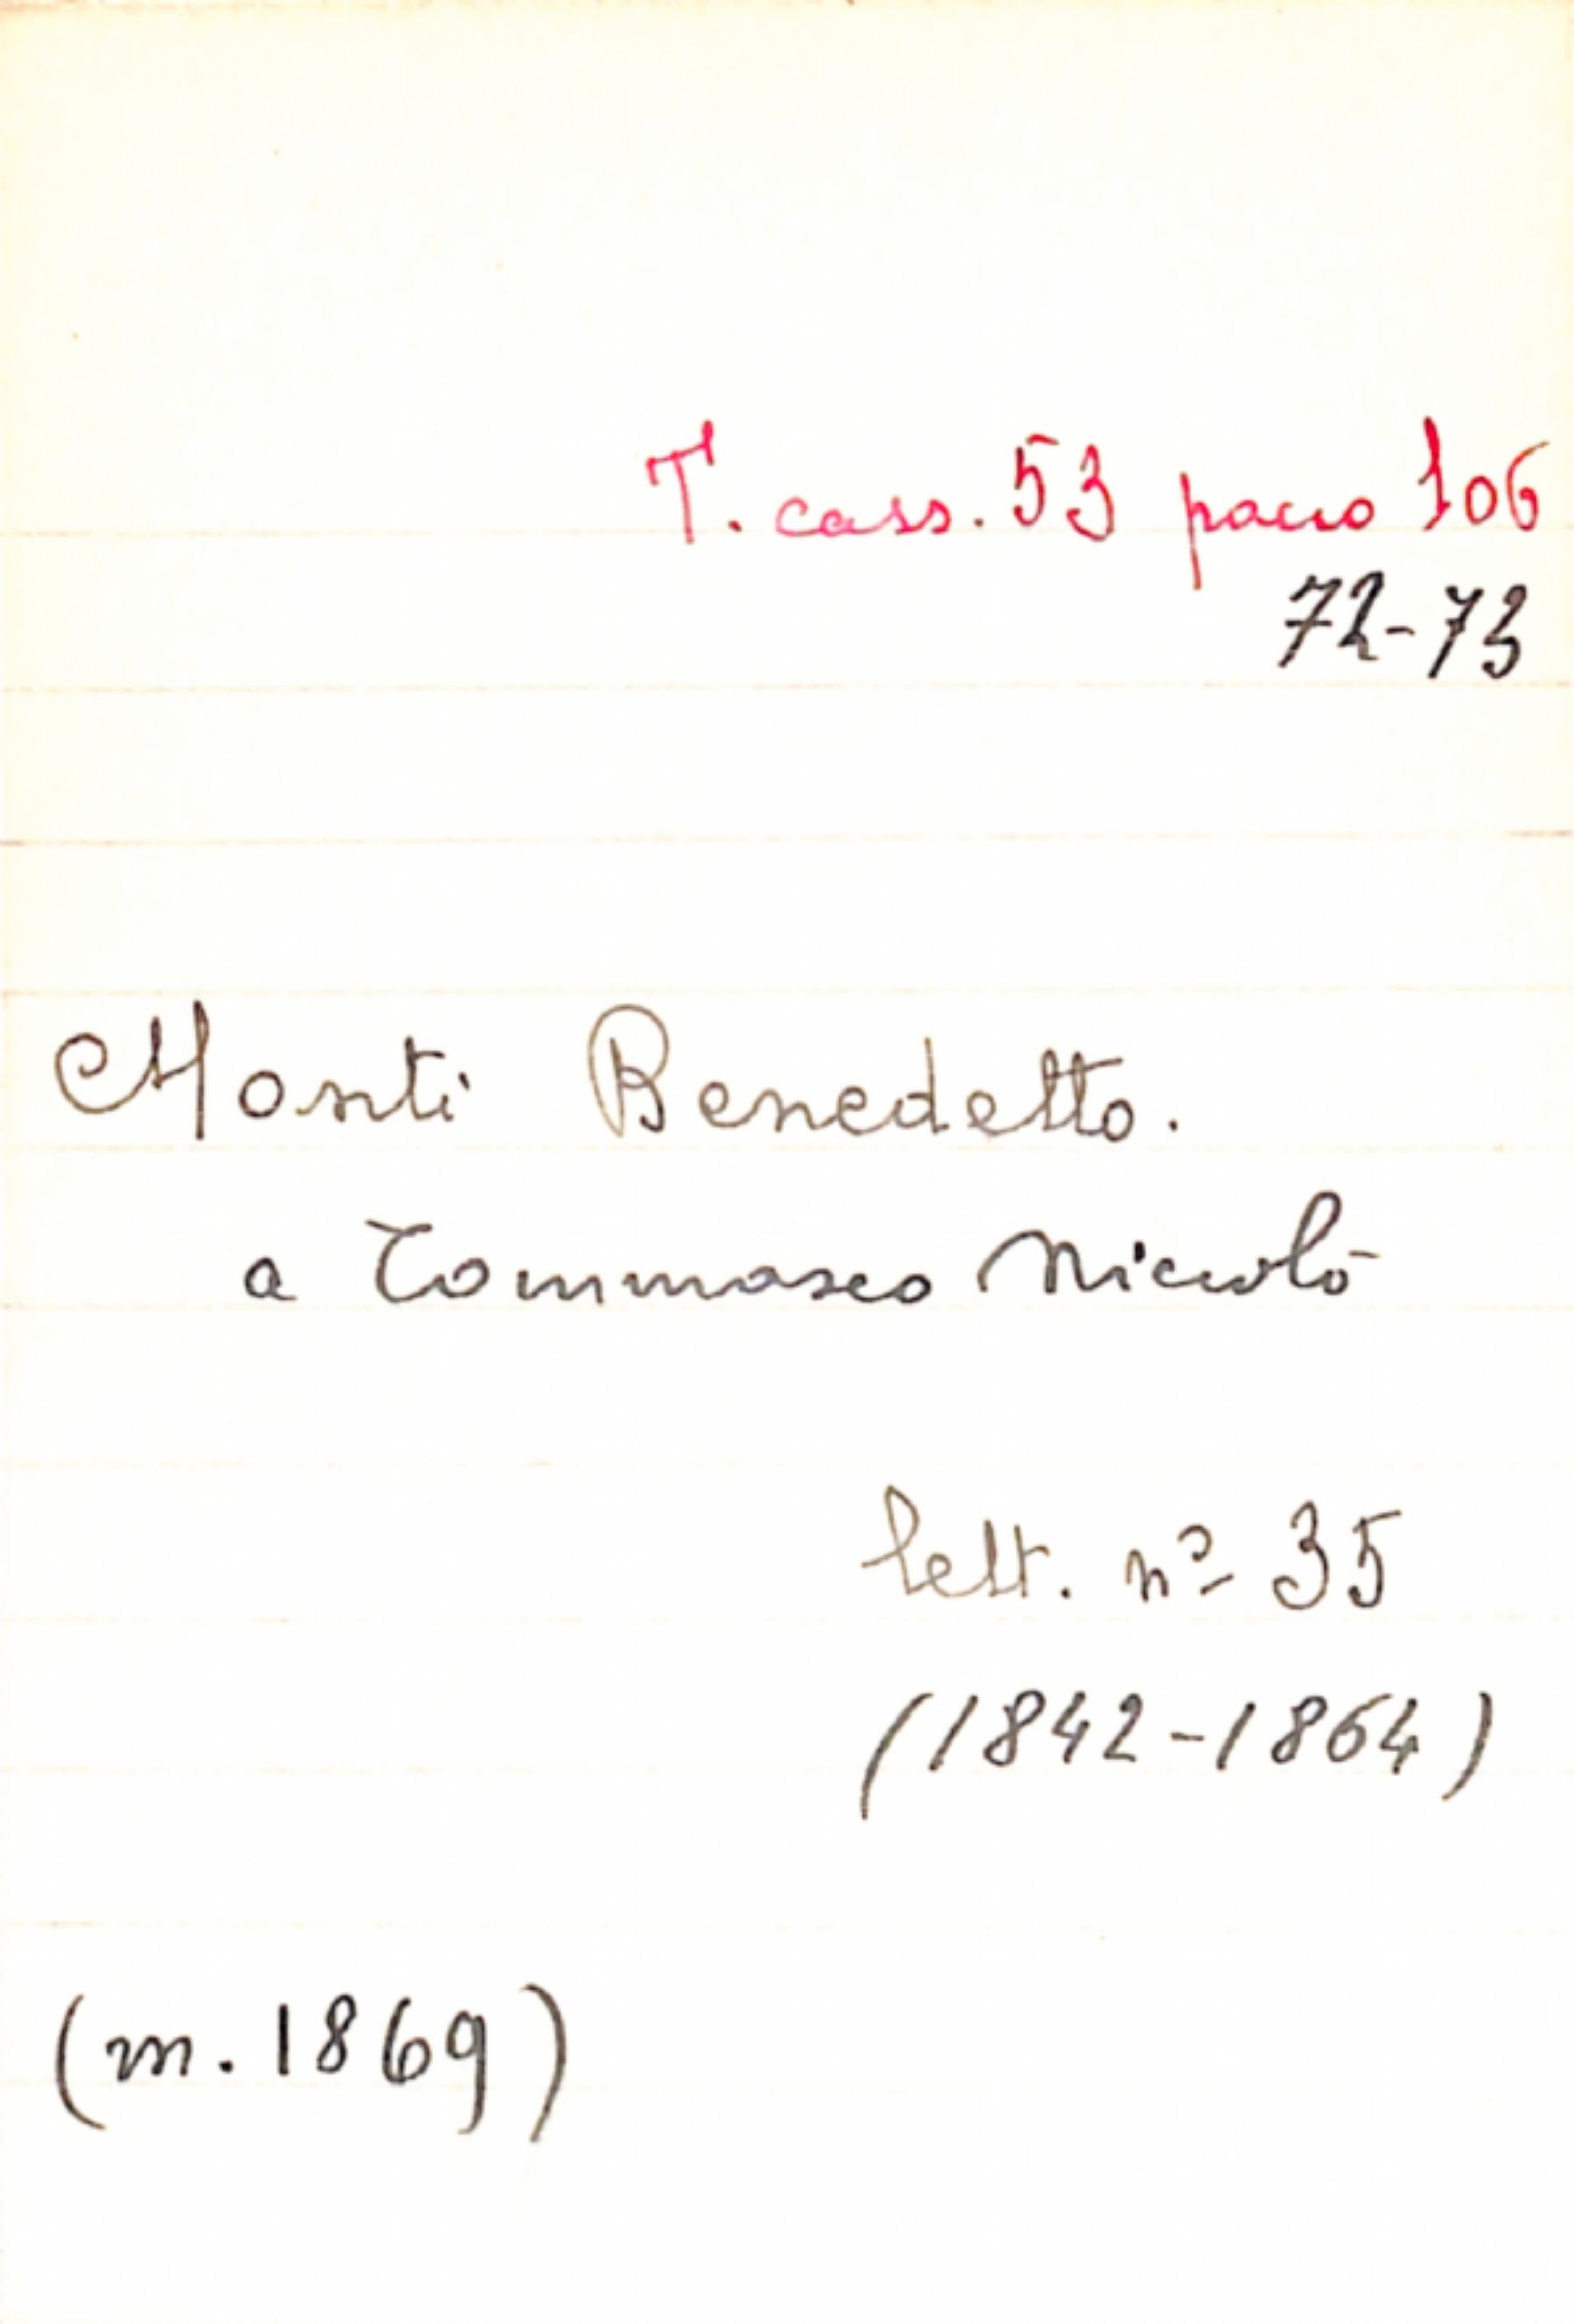 T. cass. 53 pacco 106
72-73
Monti Benedetto.
a Tommaseo Niccolò
lett. nº 35
(1842-1864)
(m. 1869)